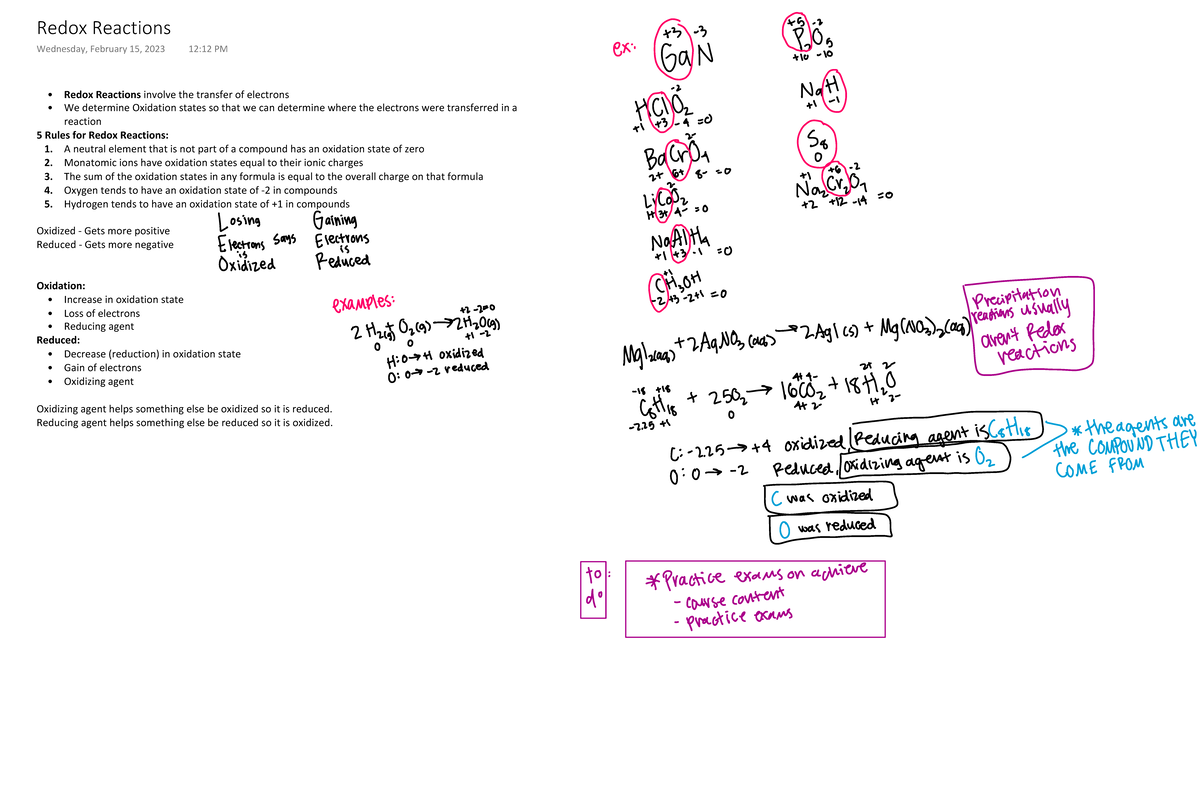 Redox Reactions
Wednesday, February 15, 2023 12:12 PM
• Redox Reactions involve the transfer of electrons
• We determine Oxidation states so that we can determine where the electrons were transferred in a
reaction
5 Rules for Redox Reactions:
1. A neutral element that is not part of a compound has an oxidation state of zero
2. Monatomic ions have oxidation states equal to their ionic charges
3. The sum of the oxidation states in any formula is equal to the overall charge on that formula
4. Oxygen tends to have an oxidation state of -2 in compounds
5. Hydrogen tends to have an oxidation state of +1 in compounds
Oxidized - Gets more positive
Reduced - Gets more negative
Losing
Electrons says
is
Oxidized
Gaining
Electrons
is
Reduced
Oxidation:
• Increase in oxidation state
• Loss of electrons
• Reducing agent
Reduced:
• Decrease (reduction) in oxidation state
• Gain of electrons
• Oxidizing agent
Oxidizing agent helps something else be oxidized so it is reduced.
Reducing agent helps something else be reduced so it is oxidized.
examples:
+2 -2=0
2 H₂(g) + O₂(g) → 2H₂O(g)
0 0 +1 -2
H: 0 → +1 oxidized
O: 0 → -2 reduced
ex:
+3 -3
GaN
-2
HClO₂
+1 +3 -4 =0
2-
BaCrO₄
2+ 6+ 8- =0
2-
LiCoO₂
1+ 3+ 4- =0
NaAlH₄
+1 +3 -1 =0
+1
CH₃OH
-2 +3 -2 +1 =0
+5 -2
P₂O₅
+10 -10
NaH
+1 -1
S₈
0
+1 +6 -2
Na₂Cr₂O₇
+2 +12 -14 =0
MgI₂(aq) + 2AgNO₃(aq) → 2AgI(s) + Mg(NO₃)₂(aq)
Precipitation
reactions usually
arent Redox
reactions
-18 +18 4+ 4- 2+ 2-
C₈H₁₈ + 25O₂ → 16CO₂ + 18H₂O
-2.25 +1 0 4+ 2- 1+ 2-
C: -2.25 → +4 oxidized, Reducing agent is C₈H₁₈
O: 0 → -2 Reduced, oxidizing agent is O₂
* the agents are
the COMPOUND THEY
COME FROM
C was oxidized
O was reduced
to do:
* Practice exams on achieve
- course content
- practice exams